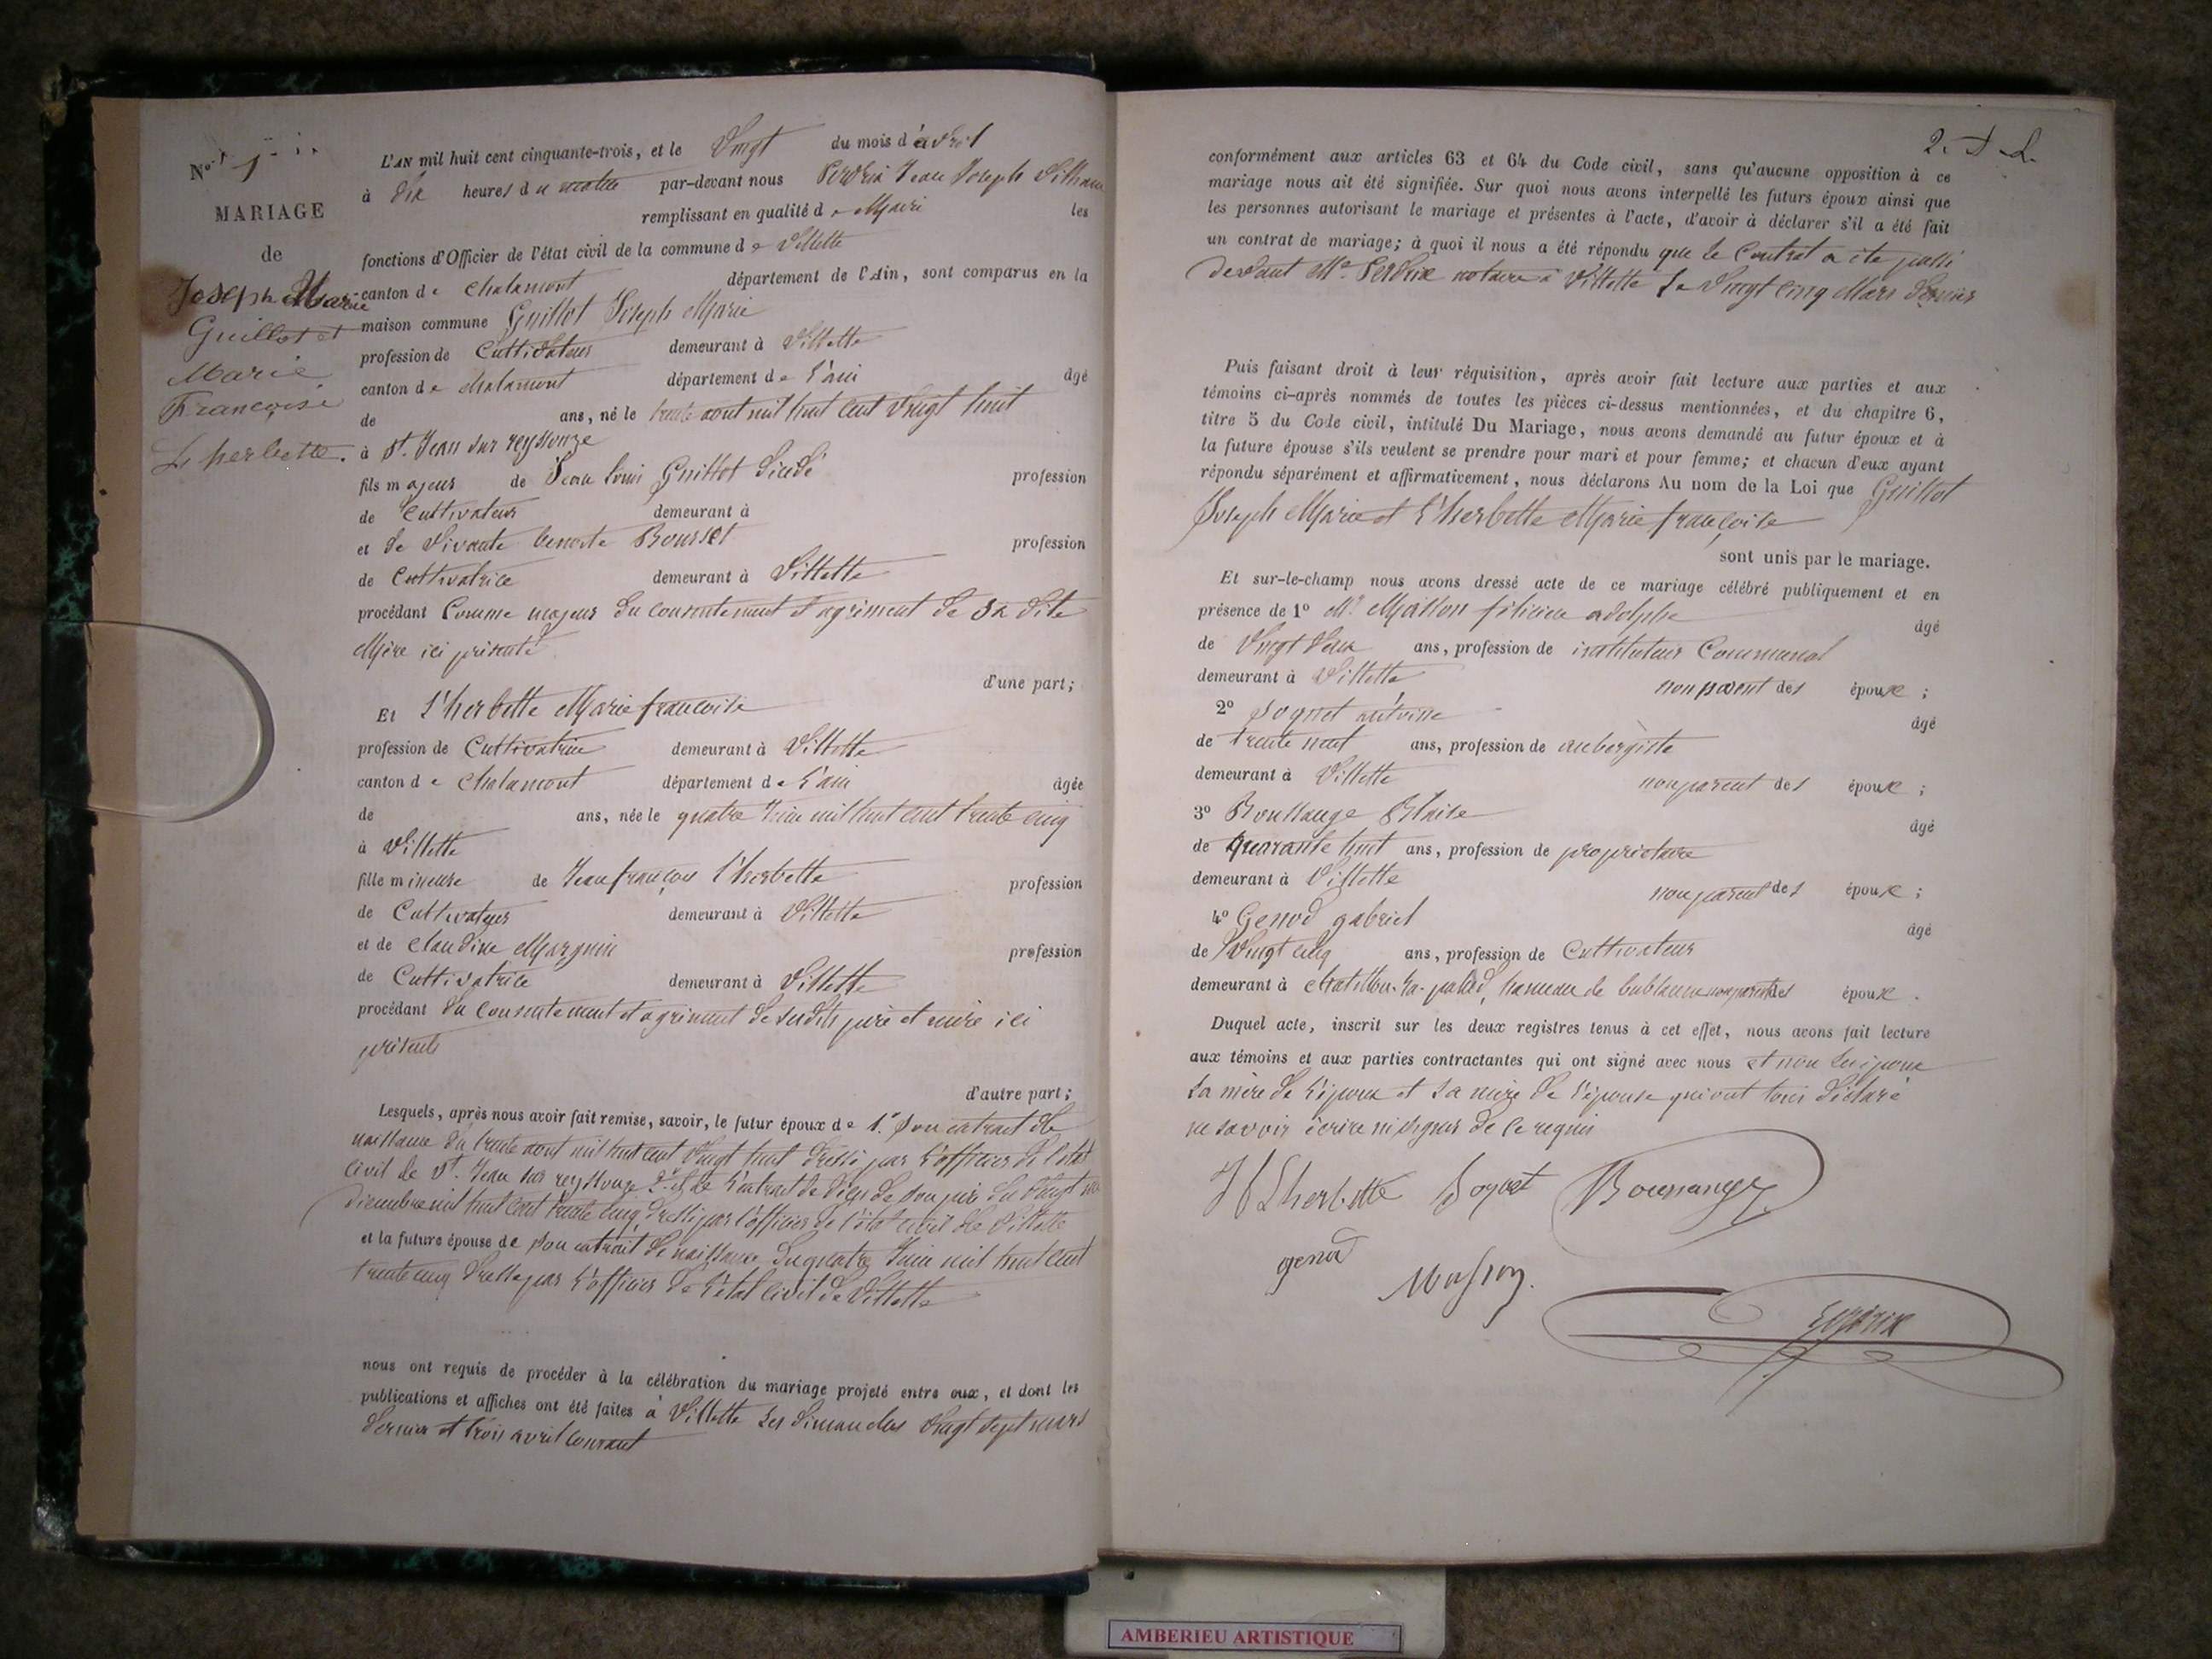 No 1
MARIAGE
de
Joseph Marie
Guillot et
Marie
Françoise
Lherbette.
L'AN mil huit cent cinquante-trois, et le Vingt du mois d'avril
à dix heures du matin par-devant nous Perdrix Jean Joseph
remplissant en qualité de Maire les
fonctions d'Officier de l'état civil de la commune de Villette
canton de Chalamont département de l'Ain, sont comparus en la
maison commune Guillot Joseph Marie
profession de Cultivateur demeurant à Villette
canton de chalamont département de l'ain âgé
de ans, né le trente aout mil huit cent vingt huit
à St. Jean sur reyssouze
fils majeur de Jean Louis Guillot décédé profession
de Cultivateur demeurant à
et de vivante benoite Bourset profession
de Cultivatrice demeurant à Villette
procédant Comme majeur du consentement et agrément de sa dite
Mère ici présente
d'une part;
Et L'herbette Marie françoise
profession de Cultivatrice demeurant à Villette
canton de Chalamont département de l'ain âgée
de ans, née le quatre Juin mil huit cent trente cinq
à Villette
fille mineure de Jean françois L'herbette profession
de Cultivateur demeurant à Villette
et de Claudine Margnin profession
de Cultivatrice demeurant à Villette
procédant du consentement et agrément de sesdits père et mère ici
présents
d'autre part;
Lesquels, après nous avoir fait remise, savoir, le futur époux de 1.° Son extrait de
naissance du trente aout mil huit cent vingt huit dressé par l'officier de l'état
civil de St. Jean sur reyssouze 2.° et de l'extrait de décès de son père du vingt
décembre mil huit cent trente cinq dressé par l'officier de l'état civil de Villette
et la future épouse de son extrait de naissance du quatre Juin mil huit cent
trente cinq dressé par l'officier de l'état civil de Villette
nous ont requis de procéder à la célébration du mariage projeté entre eux, et dont les
publications et affiches ont été faites à Villette les dimanches vingt sept mars
dernier et trois avril courant
conformément aux articles 63 et 64 du Code civil, sans qu'aucune opposition à ce
mariage nous ait été signifiée. Sur quoi nous avons interpellé les futurs époux ainsi que
les personnes autorisant le mariage et présentes à l'acte, d'avoir à déclarer s'il a été fait
un contrat de mariage; à quoi il nous a été répondu que le Contrat a été passé
devant Me Perdrix notaire à Villette le Vingt cinq Mars dernier
Puis faisant droit à leur réquisition, après avoir fait lecture aux parties et aux
témoins ci-après nommés de toutes les pièces ci-dessus mentionnées, et du chapitre 6,
titre 5 du Code civil, intitulé Du Mariage, nous avons demandé au futur époux et à
la future épouse s'ils veulent se prendre pour mari et pour femme; et chacun d'eux ayant
répondu séparément et affirmativement, nous déclarons Au nom de la Loi que Guillot
Joseph Marie et L'herbette Marie françoise
sont unis par le mariage.
Et sur-le-champ nous avons dressé acte de ce mariage célébré publiquement et en
présence de 1° Mr. Masson félicien adolphe âgé
de Vingt deux ans, profession de instituteur Communal
demeurant à Villette non parent des époux ;
2° Soquet antoine âgé
de trente neuf ans, profession de aubergiste
demeurant à Villette non parent des époux ;
3° Boullange Blaise âgé
de quarante huit ans, profession de propriétaire
demeurant à Villette non parent des époux ;
4° Genod gabriel âgé
de Vingt cinq ans, profession de Cultivateur
demeurant à chatillon-la-palud, hameau de bublanne non parent des époux .
Duquel acte, inscrit sur les deux registres tenus à cet effet, nous avons fait lecture
aux témoins et aux parties contractantes qui ont signé avec nous et non les époux
la mère de l'époux et la mère de l'épouse qui ont tous déclaré
ne savoir écrire ni signer de ce requis
Lherbette Soquet
genod Masson
Perdrix
AMBERIEU ARTISTIQUE